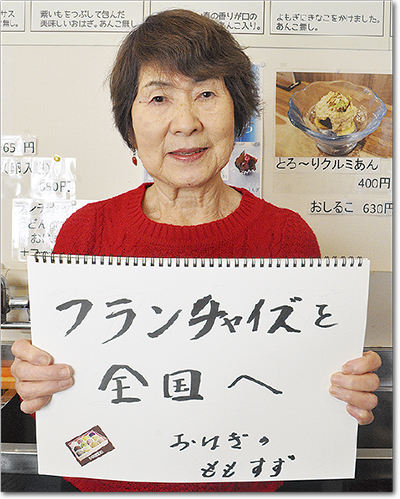 サス
紫いもをつぶして包んだ
美味しいおはぎ。あんこ無し。
の香りが口の
あんこ入り。
よもぎにきなこをかけました。
あんこ無し。
65円
350円
とろ～りクルミあん
400円
おしるこ 630円
フランチャイズを
全国へ
おはぎの
ももすず